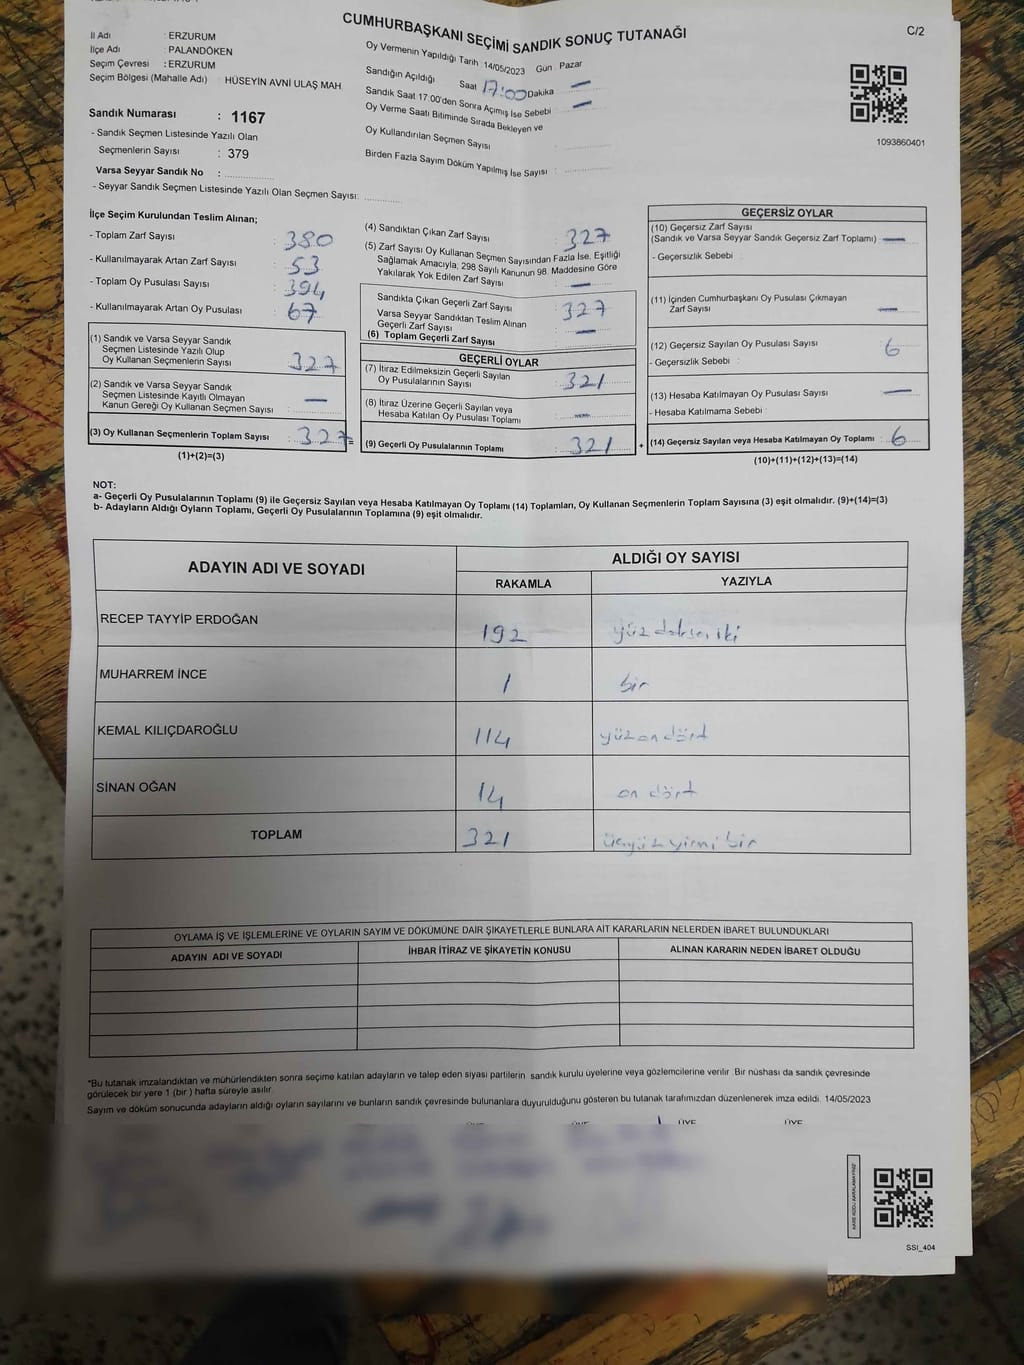 CUMHURBAŞKANI SEÇİMİ SANDIK SONUÇ TUTANAĞI
C/2
İl Adı : ERZURUM
İlçe Adı : PALANDÖKEN
Seçim Çevresi : ERZURUM
Seçim Bölgesi (Mahalle Adı) : HÜSEYİN AVNİ ULAŞ MAH
Sandık Numarası : 1167
- Sandık Seçmen Listesinde Yazılı Olan
Seçmenlerin Sayısı : 379
Varsa Seyyar Sandık No :
- Seyyar Sandık Seçmen Listesinde Yazılı Olan Seçmen Sayısı:
Oy Vermenin Yapıldığı Tarih : 14/05/2023 Gün : Pazar
Sandığın Açıldığı Saat 17:00 Dakika —
Sandık Saat 17:00'den Sonra Açımış İse Sebebi —
Oy Verme Saati Bitiminde Sırada Bekleyen ve
Oy Kullandırılan Seçmen Sayısı :
Birden Fazla Sayım Döküm Yapılmış İse Sayısı :
1093860401
İlçe Seçim Kurulundan Teslim Alınan;
- Toplam Zarf Sayısı : 380
- Kullanılmayarak Artan Zarf Sayısı : 53
- Toplam Oy Pusulası Sayısı : 394
- Kullanılmayarak Artan Oy Pusulası : 67
(1) Sandık ve Varsa Seyyar Sandık
Seçmen Listesinde Yazılı Olup
Oy Kullanan Seçmenlerin Sayısı : 327
(2) Sandık ve Varsa Seyyar Sandık
Seçmen Listesinde Kayıtlı Olmayan
Kanun Gereği Oy Kullanan Seçmen Sayısı : —
(3) Oy Kullanan Seçmenlerin Toplam Sayısı : 327 =
(1)+(2)=(3)
(4) Sandıktan Çıkan Zarf Sayısı : 327
(5) Zarf Sayısı Oy Kullanan Seçmen Sayısından Fazla İse, Eşitliği
Sağlamak Amacıyla; 298 Sayılı Kanunun 98. Maddesine Göre
Yakılarak Yok Edilen Zarf Sayısı : —
Sandıkta Çıkan Geçerli Zarf Sayısı : 327
Varsa Seyyar Sandıktan Teslim Alınan
Geçerli Zarf Sayısı : —
(6) Toplam Geçerli Zarf Sayısı :
GEÇERLİ OYLAR
(7) İtiraz Edilmeksizin Geçerli Sayılan
Oy Pusulalarının Sayısı : 321
(8) İtiraz Üzerine Geçerli Sayılan veya
Hesaba Katılan Oy Pusulası Toplamı : —
(9) Geçerli Oy Pusulalarının Toplamı : 321 +
GEÇERSİZ OYLAR
(10) Geçersiz Zarf Sayısı
(Sandık ve Varsa Seyyar Sandık Geçersiz Zarf Toplamı) : —
- Geçersizlik Sebebi :
(11) İçinden Cumhurbaşkanı Oy Pusulası Çıkmayan
Zarf Sayısı : —
(12) Geçersiz Sayılan Oy Pusulası Sayısı : 6
- Geçersizlik Sebebi :
(13) Hesaba Katılmayan Oy Pusulası Sayısı : —
- Hesaba Katılmama Sebebi :
(14) Geçersiz Sayılan veya Hesaba Katılmayan Oy Toplamı : 6
(10)+(11)+(12)+(13)=(14)
NOT:
a- Geçerli Oy Pusulalarının Toplamı (9) ile Geçersiz Sayılan veya Hesaba Katılmayan Oy Toplamı (14) Toplamları, Oy Kullanan Seçmenlerin Toplam Sayısına (3) eşit olmalıdır. (9)+(14)=(3)
b- Adayların Aldığı Oyların Toplamı, Geçerli Oy Pusulalarının Toplamına (9) eşit olmalıdır.
ADAYIN ADI VE SOYADI ALDIĞI OY SAYISI
RAKAMLA YAZIYLA
RECEP TAYYİP ERDOĞAN 192 yüz doksan iki
MUHARREM İNCE 1 bir
KEMAL KILIÇDAROĞLU 114 yüz on dört
SİNAN OĞAN 14 on dört
TOPLAM 321 üçyüz yirmi bir
OYLAMA İŞ VE İŞLEMLERİNE VE OYLARIN SAYIM VE DÖKÜMÜNE DAİR ŞİKAYETLERLE BUNLARA AİT KARARLARIN NELERDEN İBARET BULUNDUKLARI
ADAYIN ADI VE SOYADI İHBAR İTİRAZ VE ŞİKAYETİN KONUSU ALINAN KARARIN NEDEN İBARET OLDUĞU
*Bu tutanak imzalandıktan ve mühürlendikten sonra seçime katılan adayların ve talep eden siyasi partilerin sandık kurulu üyelerine veya gözlemcilerine verilir .Bir nüshası da sandık çevresinde
görülecek bir yere 1 (bir ) hafta süreyle asılır.
Sayım ve döküm sonucunda adayların aldığı oyların sayılarını ve bunların sandık çevresinde bulunanlara duyurulduğunu gösteren bu tutanak tarafımızdan düzenlenerek imza edildi. 14/05/2023
ÜYE ÜYE
SSI_404